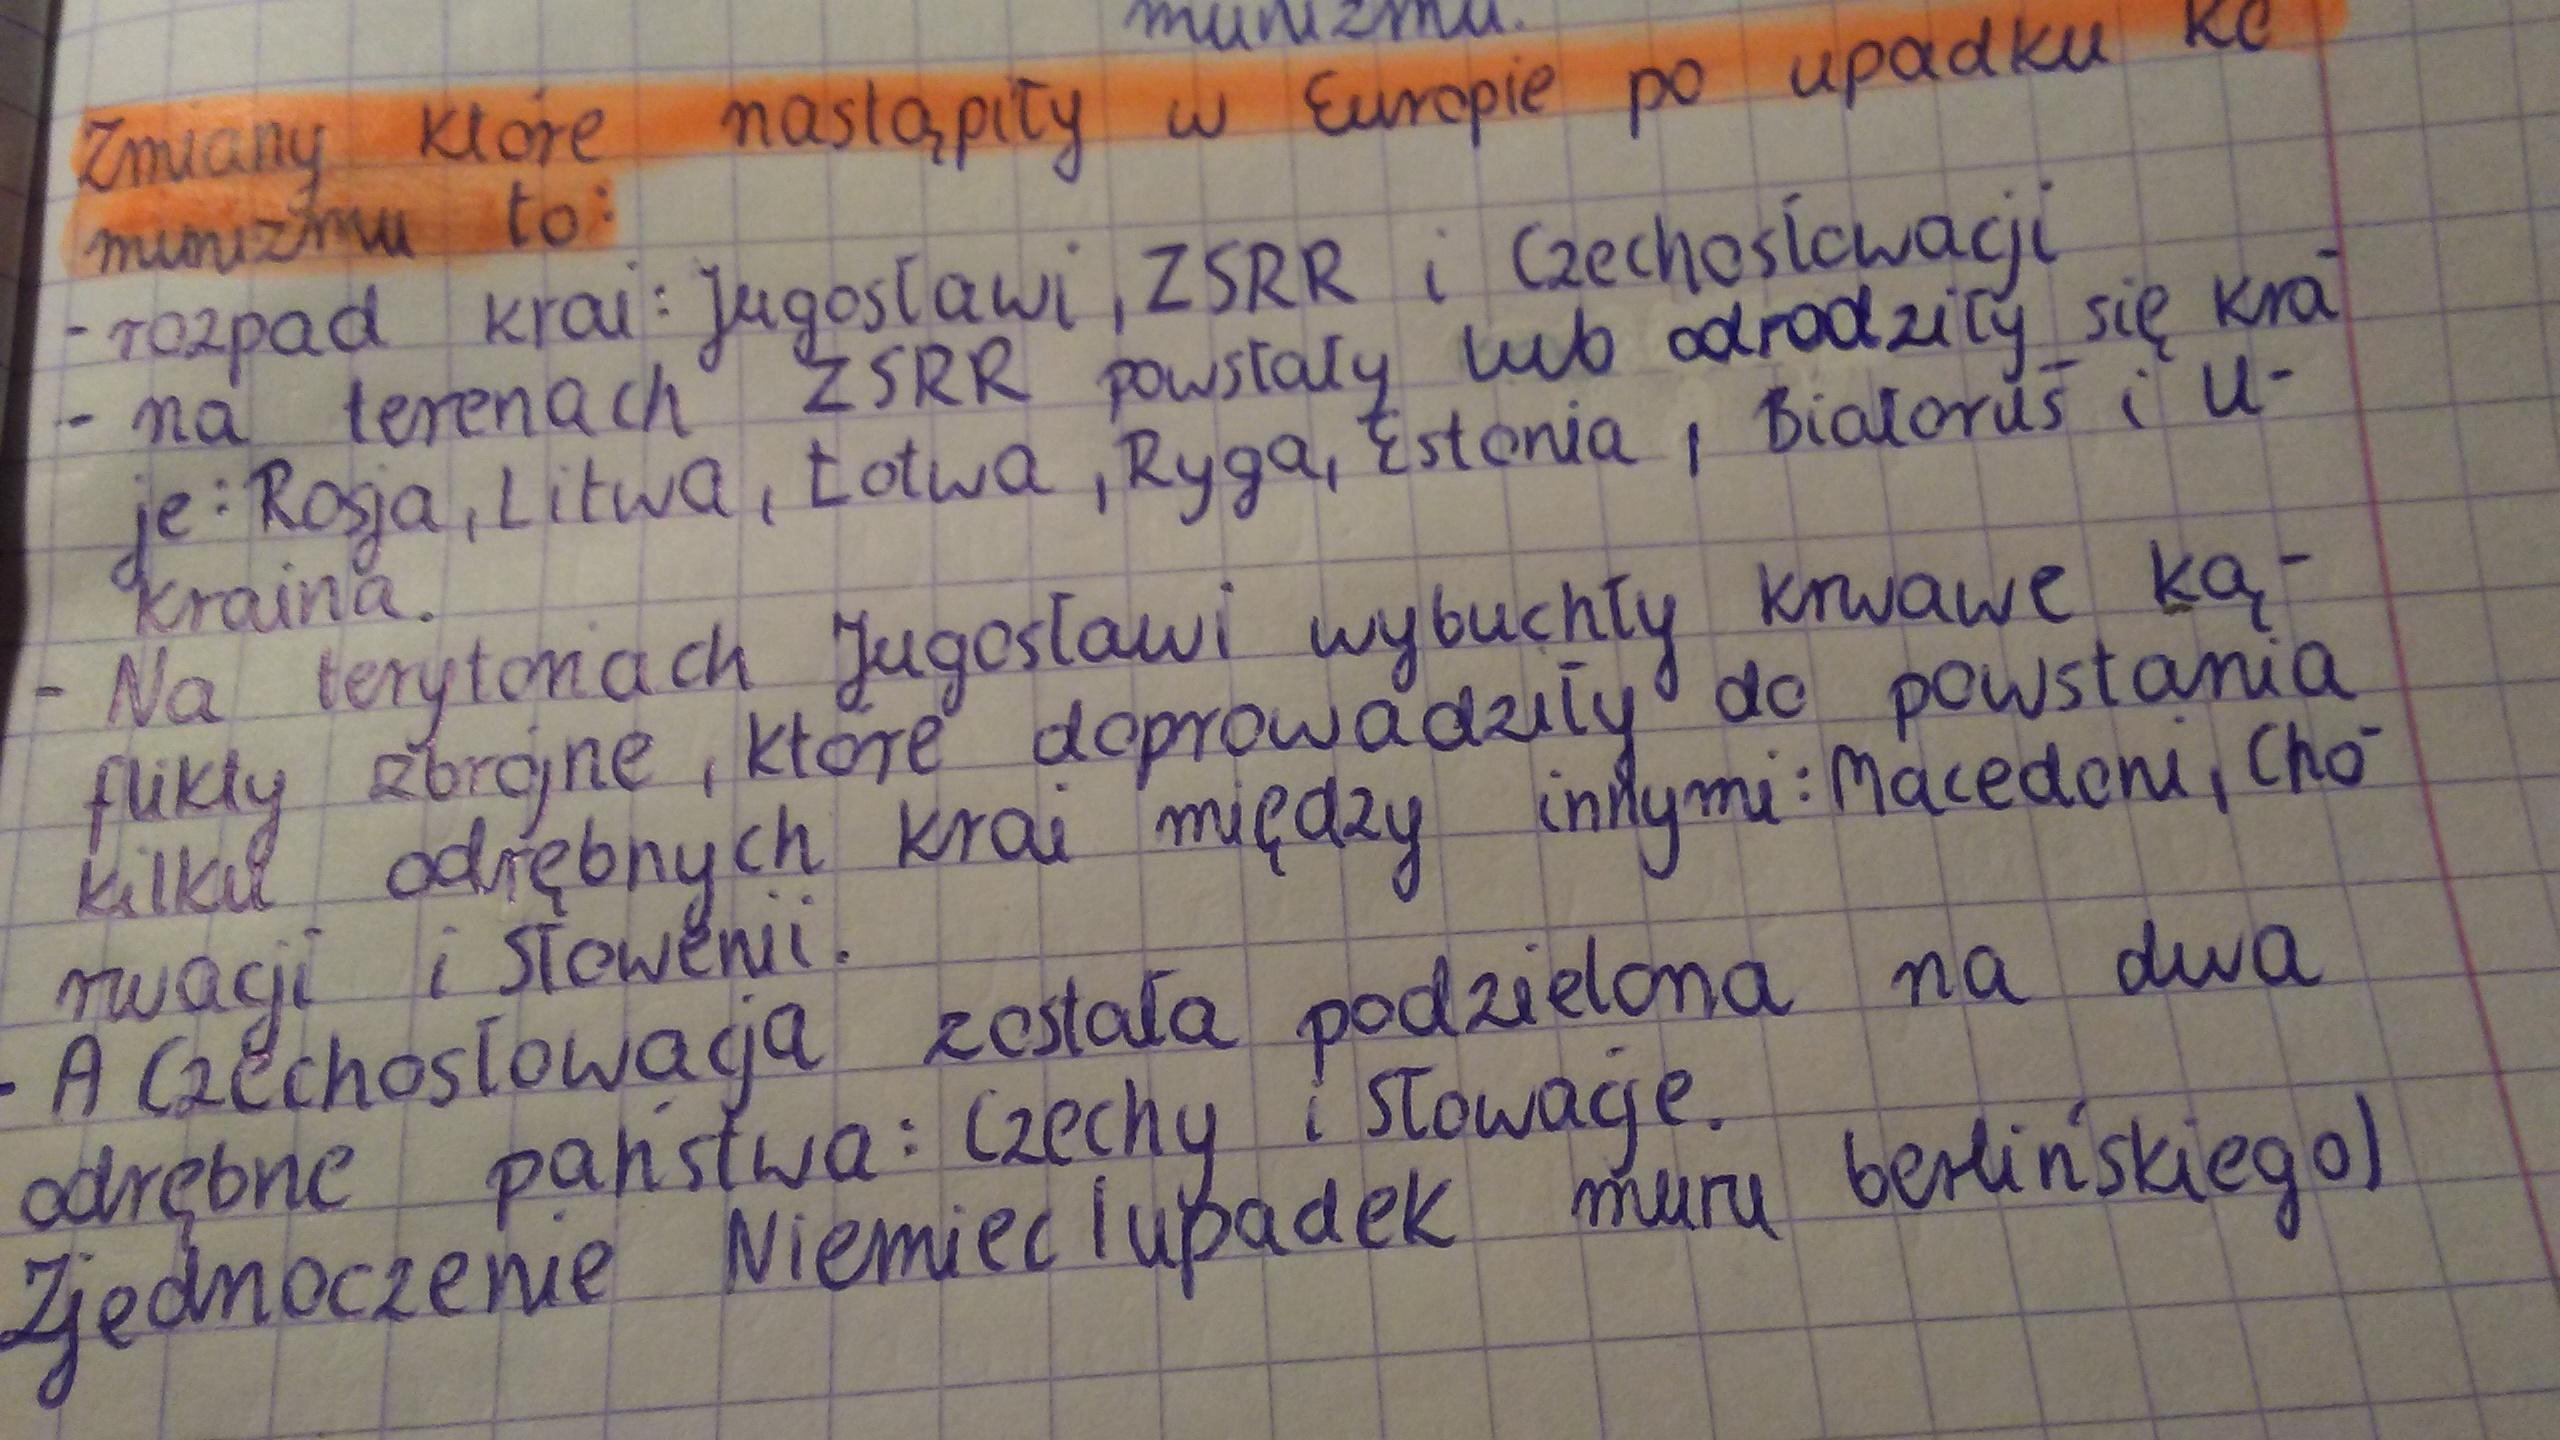 munizmu.
Zmiany które nastąpiły w Europie po upadku ko
munizmu to:
- rozpad krai: Jugosławi, ZSRR i Czechosłowacji
- na terenach ZSRR powstały lub odrodziły się kra-
je: Rosja, Litwa, Łotwa, Ryga, Estonia, Białoruś i U-
kraina.
- Na terytoriach Jugosławi wybuchły krwawe ką-
flikty zbrojne, które doprowadziły do powstania
kilku odrębnych krai między innymi: Macedoni, Cho-
rwacji i Słowenii.
- A Czechosłowacja została podzielona na dwa
odrębne państwa: Czechy i Słowację.
Zjednoczenie Niemiec (upadek muru berlińskiego)